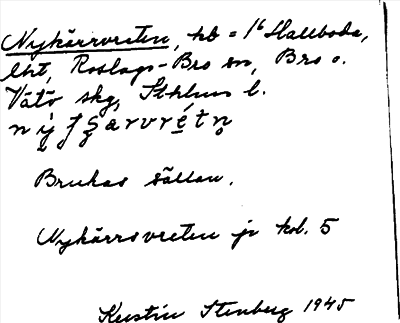 Nykärrvreten, hb = 1⁶ Hallboda,
Lht, Roslags-Bro sn, Bro o.
Vätö skg, Sthlms l.
Brukas sällan.
Nykärrsvreten jr kol. 5
Kerstin Stenberg 1945